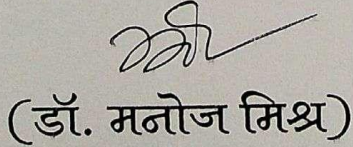 (डॉ. मनोज मिश्र)